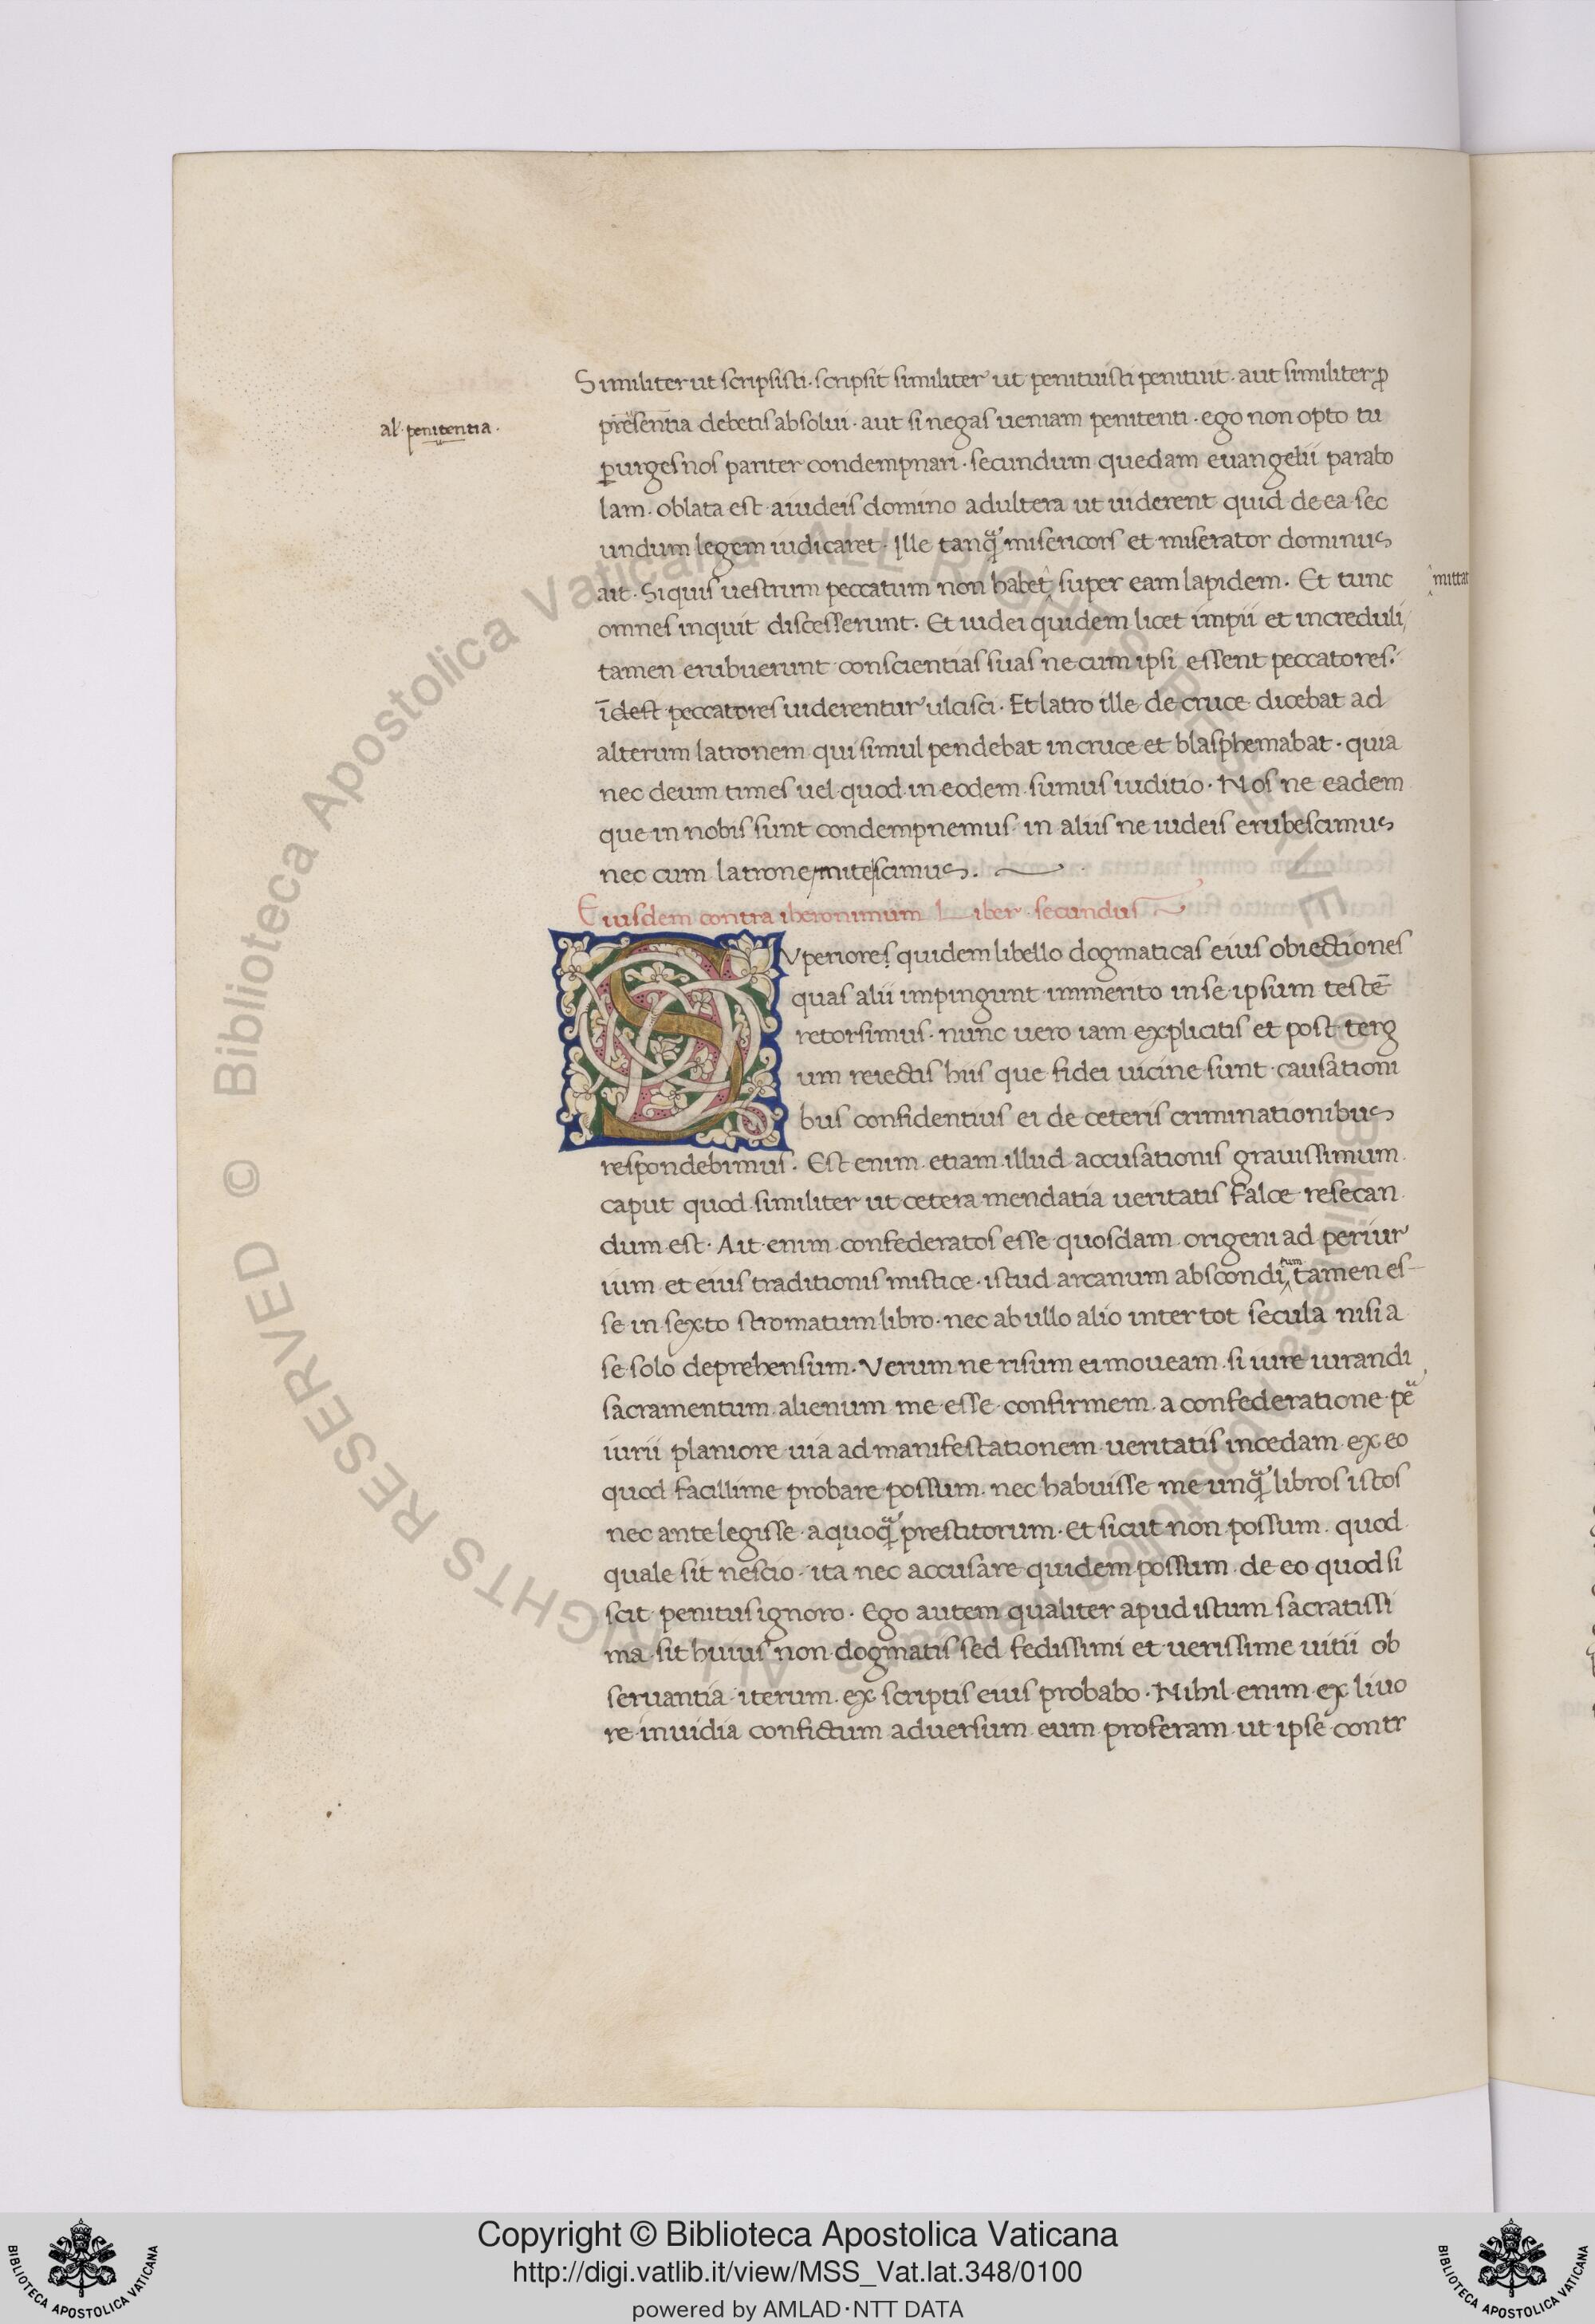 Similiter ut scripsisti · scripsit similiter ut penituisti penituit · aut similiter ꝑ
al' penitentia ·
presentia debetis absolui · aut si negas ueniam penitenti · ego non opto tu
ꝑurges nos pariter condempnari · secundum quedam euangelii parabo
lam · oblata est a iudeis domino adultera ut uiderent quid de ea sec
undum legem iudicaret · Ille tanq̃ misericors et miserator dominus
ait · Si quis uestrum peccatum non habet ‸ super eam lapidem · Et tunc
‸ mittat
omnes inquit discesserunt · Et iudei quidem licet impii et increduli
tamen erubuerunt conscientias suas ne cum ipsi essent peccatores ·
idest peccatores uiderentur ulcisci · Et latro ille de cruce dicebat ad
alterum latronem qui simul pendebat in cruce et blasphemabat · quia
nec deum times uel quod in eodem sumus iuditio · Nos ne eadem
que in nobis sunt condempnemus in aliis ne iudeis erubescimus
nec cum latrone mitescimus ·
Eiusdem contra iheronimum Liber secundus
Superiores quidem libello dogmaticas eius obiectiones
quas alii impingunt immerito in se ipsum testē
retorsimus · nunc uero iam explicitis et post terg
um reiectis hiis que fidei uicine sunt causationi
bus confidentius ei de ceteris criminationibus
respondebimus · Est enim etiam illud accusationis grauissimum
caput quod similiter ut cetera mendatia ueritatis falce resecan
dum est · Ait enim confederatos esse quosdam origeni ad periur
ium et eius traditionis mistice · istud arcanum abscondi ‸tum tamen es
se in sexto stromatum libro · nec ab ullo alio inter tot secula nisi a
se solo deprehensum · Verum ne risum ei moueam si iure iurandi
sacramentum alienum me esse confirmem a confederatione pe
iurii planiore uia ad manifestationem ueritatis incedam ex eo
quod facillime probare possum · nec habuisse me unq̃ libros istos
nec ante legisse a quoq̃ prestitorum · Et sicut non possum quod
quale sit nescio · ita nec accusare quidem possum de eo quod si
scit penitus ignoro · Ego autem qualiter apud istum sacratissi
ma sit huius non dogmatis sed fedissimi et uerissime uitii ob
seruantia iterum ex scriptis eius probabo · Nihil enim ex liuo
re inuidia confictum aduersum eum proferam ut ipse contr
© Biblioteca Apostolica Vaticana ALL RIGHTS RESERVED
Copyright © Biblioteca Apostolica Vaticana
http://digi.vatlib.it/view/MSS_Vat.lat.348/0100
powered by AMLAD·NTT DATA
BIBLIOTECA APOSTOLICA VATICANA
BIBLIOTECA APOSTOLICA VATICANA